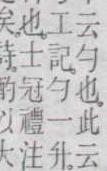 云勺也此云
工記勺一升
也士冠禮注
矣詩酌以大